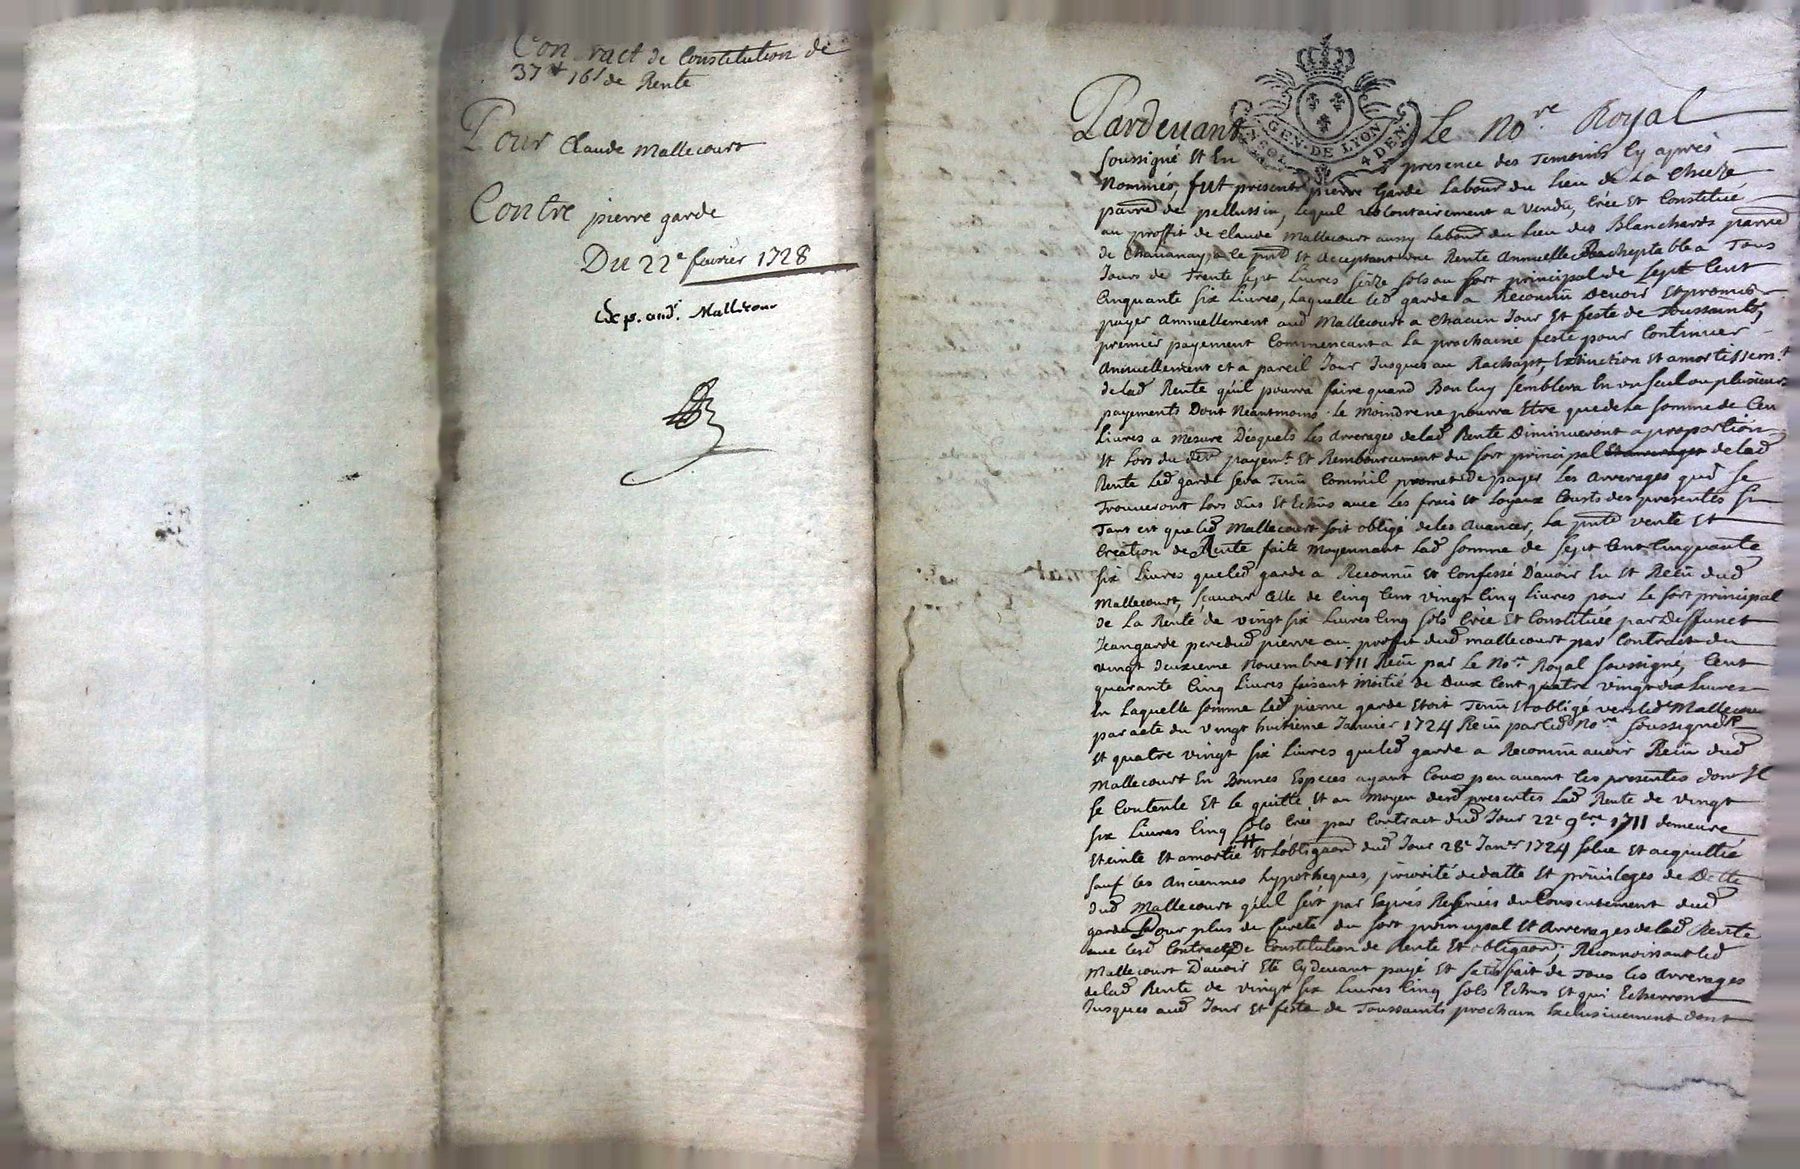 Contract de Constitution de
37ᵗᵗ 16ˢ de Rente
Pour Claude Mallecourt
Contre pierre garde
Du 22ᵉ feurier 1728
Exp. aud. Mallecour
GEN. DE LYON
4 DEN.
Pardeuant Le Noʳᵉ Royal
soussigné Et En presence des Temoins Cy apres
Nommés, fut present pierre Garde Labourᵈ du Lieu de La Chieze
parrᵈ de pellussin, lequel volontairement a Vendu, Créé Et Constitué
au proffit de Claude Mallecourt aussy Labourᵈ du Lieu des Blanchards parrᵈ
de Chauanay, a ce pnᵗ Et acceptant une Rente Annuelle Racheptable a Tous
Jours de Trente sept Liures seize sols au sort principal de sept Cent
Cinquante six Liures, Laquelle led garde a Reconnu deuoir Et promis
payer annuellement aud Mallecourt a Chacun Jour Et feste de Toussaints,
premier payement Commencant a La prochaine feste pour Continuer
Annuellement et a pareil Jour Jusques au Rachapt, Extinction Et amortissemᵗ
de lad Rente qu'il pourra faire quand Bon luy semblera En un seul ou plusieurs
payements Dont Neantmoins Le Moindre ne pourra Etre que de La somme de Cen
Liures a Mesure Desquels Les arrerages de lad Rente Diminueront a proportion
Et Lors du derʳ payemᵗ Et Remboursement du sort principal de lad
Rente Led garde sera Tenu Comm'il promet de payer Les arrerages qui se
Trouueront Lors dus Et Echus auec Les frais Et Loyaux Cousts des presentes si
Tant est que led Mallecourt soit obligé de les auancer, La pnte vente Et
Création de Rente faite Moyennant Lad somme de sept Cent Cinquante
six Liures que led garde a Reconnu Et Confessé D'auoir Eu Et Receu dud
Mallecourt, scauoir Celle de Cinq Cent vingt Cinq Liures pour Le sort principal
de La Rente de vingt six Liures Cinq sols Créé Et Constituée par Deffunct
Jean garde pere dud pierre au proffit dud mallecourt par Contract du
vingt deuxieme Nouembre 1711 Receu par Le Noʳᵉ Royal soussigné, Cent
quarante Cinq Liures faisant Moitié de Deux Cent quatre vingt dix Liures
En Laquelle somme Led pierre garde Etoit Tenu Et obligé vers led Mallecour
par acte du vingt huitieme Januier 1724 Receu par led Noʳᵉ soussigné
Et quatre vingt six Liures que led garde a Reconnu auoir Receu dud
Mallecourt En Bonnes Especes ayant Cours peu auant les presentes dont Il
se Contente Et le quitte Et au Moyen desd presentes Lad Rente de vingt
six Liures Cinq sols Créé par Contract dud Jour 22ᵉ 9bre 1711 demeure
Eteinte Et amortie Et L'obligaon dud Jour 28ᵉ Janᵉʳ 1724 solue Et acquittée
sauf les Anciennes hypotheques, priorité de datte Et priuileges de Dette
dud Mallecourt qu'il s'est par Exprés Reserués du Consentement dud
garde Pour plus de sureté du sort principal Et Arrerages de lad Rente
auec lesd Contract de Constitution de Rente Et obligaon, Reconnoissant led
Mallecourt D'auoir Eté Cy deuant payé Et satisfait de Tous les arrerages
de lad Rente de vingt six Liures Cinq sols Echus Et qui Echerront
Jusques aud Jour Et feste de Toussaints prochain Exclusiuement dont